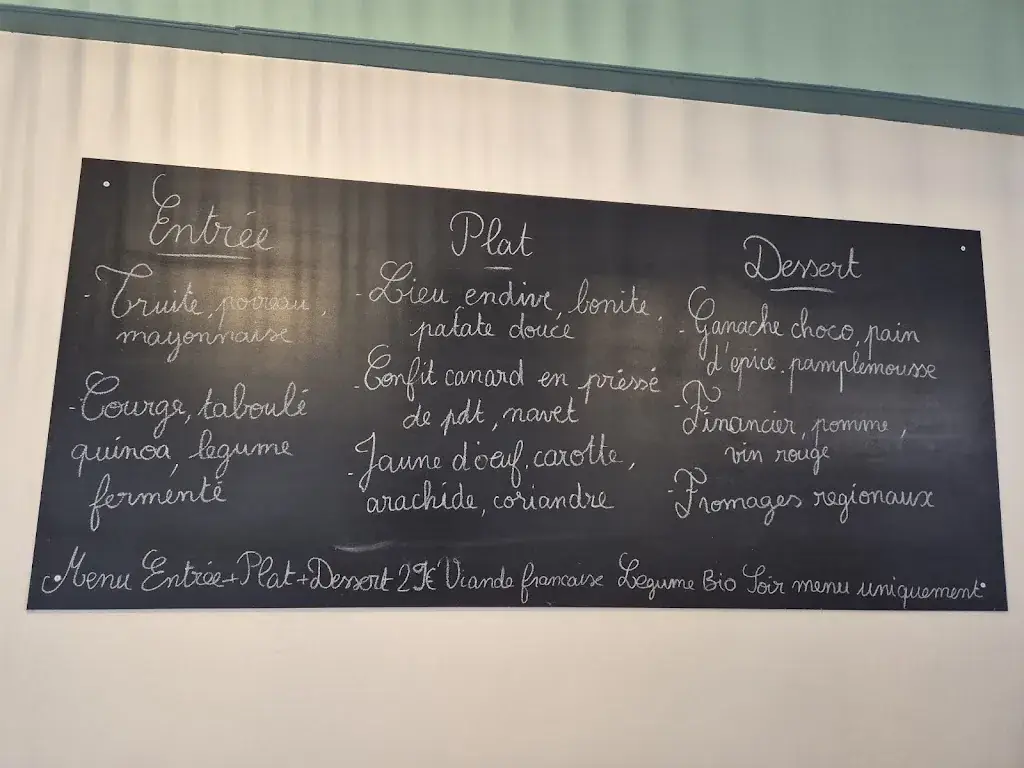 Entrée
- Truite, poireau,
mayonnaise
- Courge, taboulé
quinoa, legume
fermenté
Plat
- Lieu endive, bonite,
patate douce
- Confit canard en préssé
de pdt, navet
- Jaune d'œuf, carotte,
arachide, coriandre
Dessert
- Ganache choco, pain
d'epice, pamplemousse
- Financier, pomme,
vin rouge
- Fromages regionaux
Menu Entrée+Plat+Dessert 29€ Viande francaise Legume Bio Soir menu uniquement